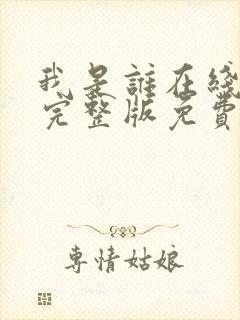 我是誰在綫
完整版免費
專情姑娘